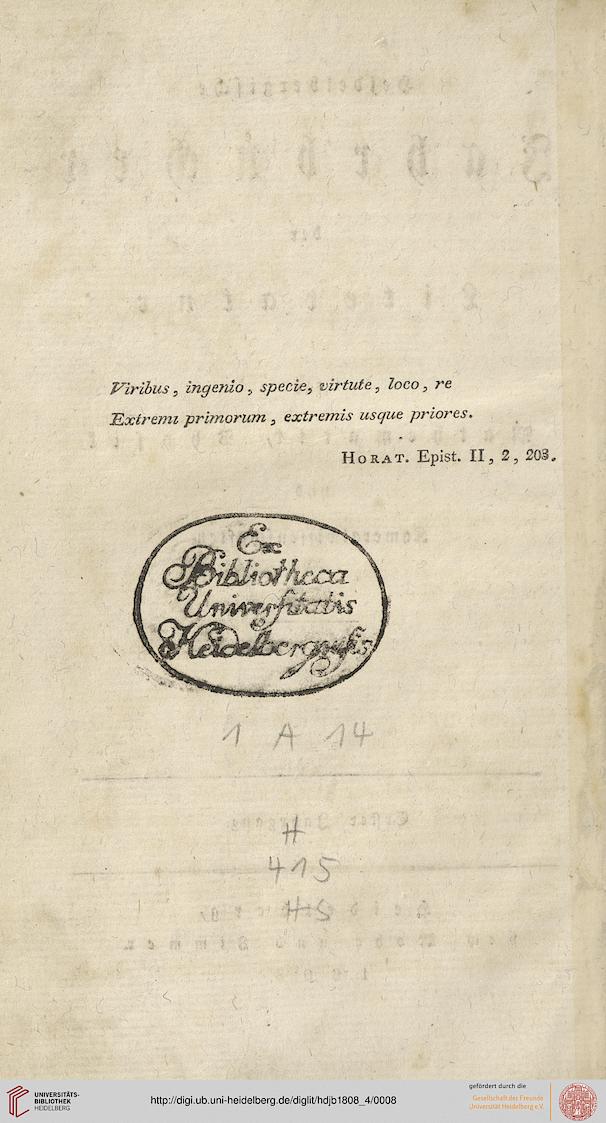 Viribus, ingenio, specie, virtute, loco, re
Extremi primorum, extremis usque priores.
HORAT. Epist. II, 2, 203.
Ex
Bibliotheca
Universitatis
Heidelbergensis
1 A 14
H
415
HS
UNIVERSITÄTS-
BIBLIOTHEK
HEIDELBERG
http://digi.ub.uni-heidelberg.de/diglit/hdjb1808_4/0008
gefördert durch die
Gesellschaft der Freunde
Universität Heidelberg e.V.